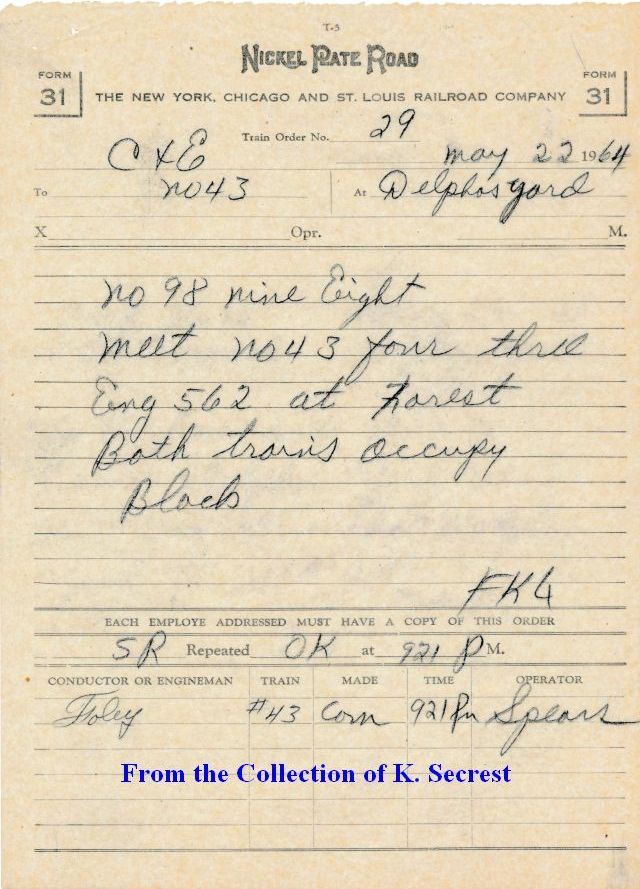 T-3
NICKEL PLATE ROAD
FORM 31
FORM 31
THE NEW YORK, CHICAGO AND ST. LOUIS RAILROAD COMPANY
Train Order No. 29
may 22 1964
To C & E no 43 At Delphos yard
X Opr. M.
no 98 nine Eight
meet no 43 four three
Eng 562 at Forest
Both trains occupy
Block
FKG
EACH EMPLOYE ADDRESSED MUST HAVE A COPY OF THIS ORDER
SR Repeated OK at 921 P M.
CONDUCTOR OR ENGINEMAN TRAIN MADE TIME OPERATOR
Foley #43 Com 921 Pm Spears
From the Collection of K. Secrest